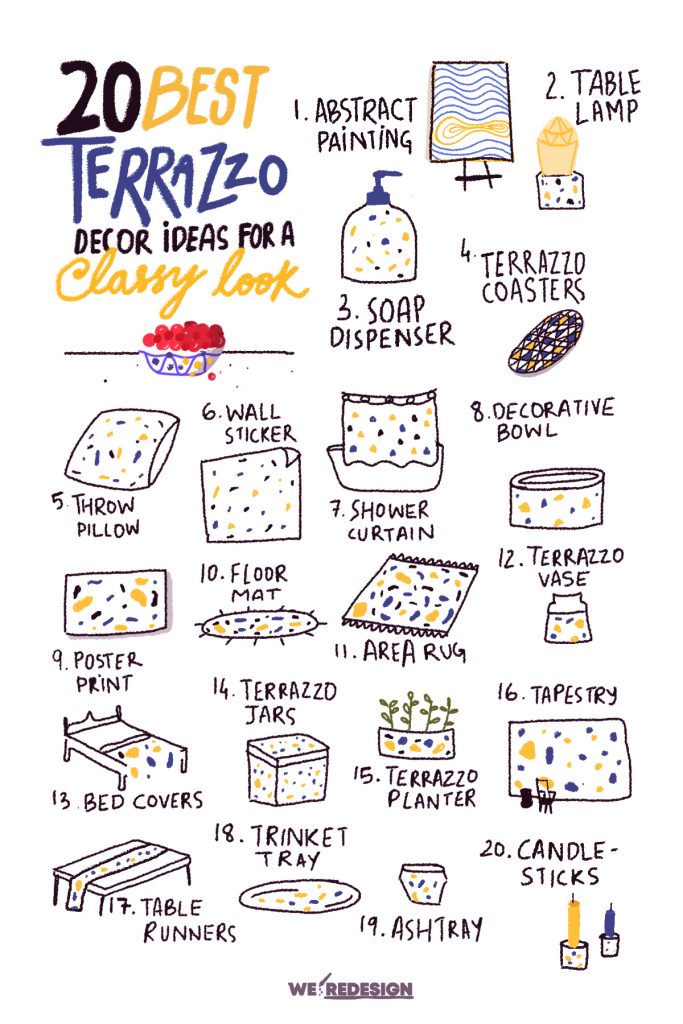 20 BEST
TERRAZZO
DECOR IDEAS FOR A
Classy look
1. ABSTRACT
PAINTING
2. TABLE
LAMP
3. SOAP
DISPENSER
4. TERRAZZO
COASTERS
5. THROW
PILLOW
6. WALL
STICKER
7. SHOWER
CURTAIN
8. DECORATIVE
BOWL
9. POSTER
PRINT
10. FLOOR
MAT
11. AREA RUG
12. TERRAZZO
VASE
13. BED COVERS
14. TERRAZZO
JARS
15. TERRAZZO
PLANTER
16. TAPESTRY
17. TABLE
RUNNERS
18. TRINKET
TRAY
19. ASHTRAY
20. CANDLE-
STICKS
WE REDESIGN